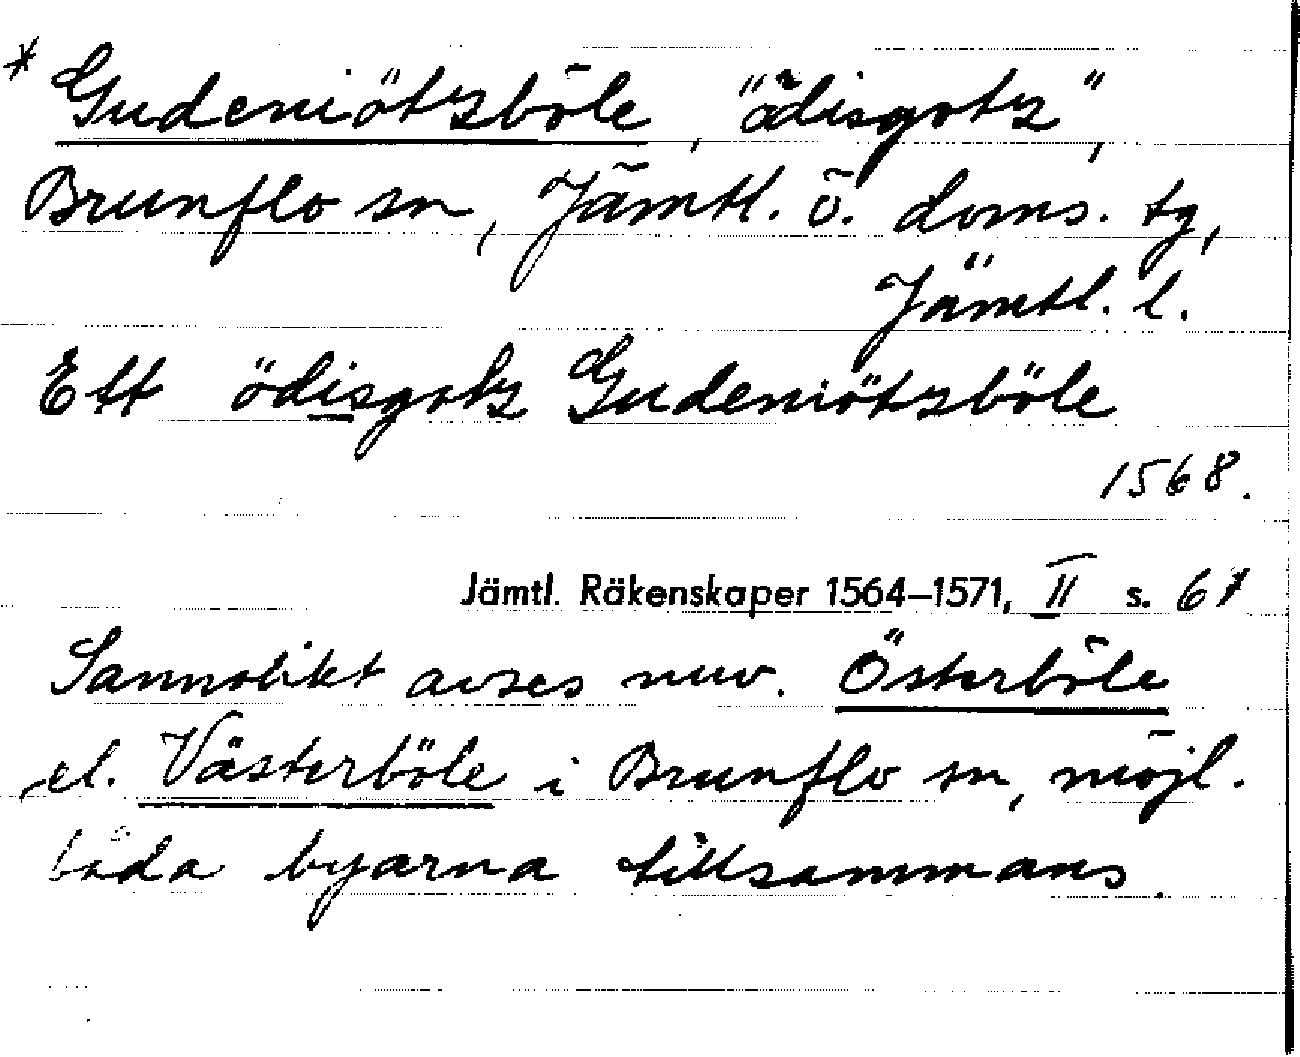 * Gudeniötzböle, "ödisgotz",
Brunflo sn, Jämtl. ö. doms. tg,
Jämtl. l.
Ett ödisgotz Gudeniötzböle
1568.
Jämtl. Räkenskaper 1564–1571, II s. 61
Sannolikt avses nuv. Österböle
el. Västerböle i Brunflo sn, möjl.
båda byarna tillsammans.